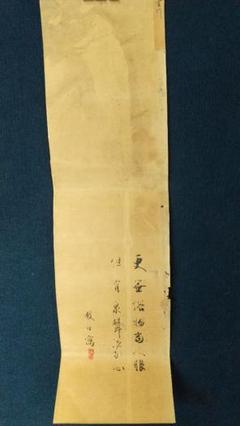 更無俗物當人眼
但有泉聲洗我心